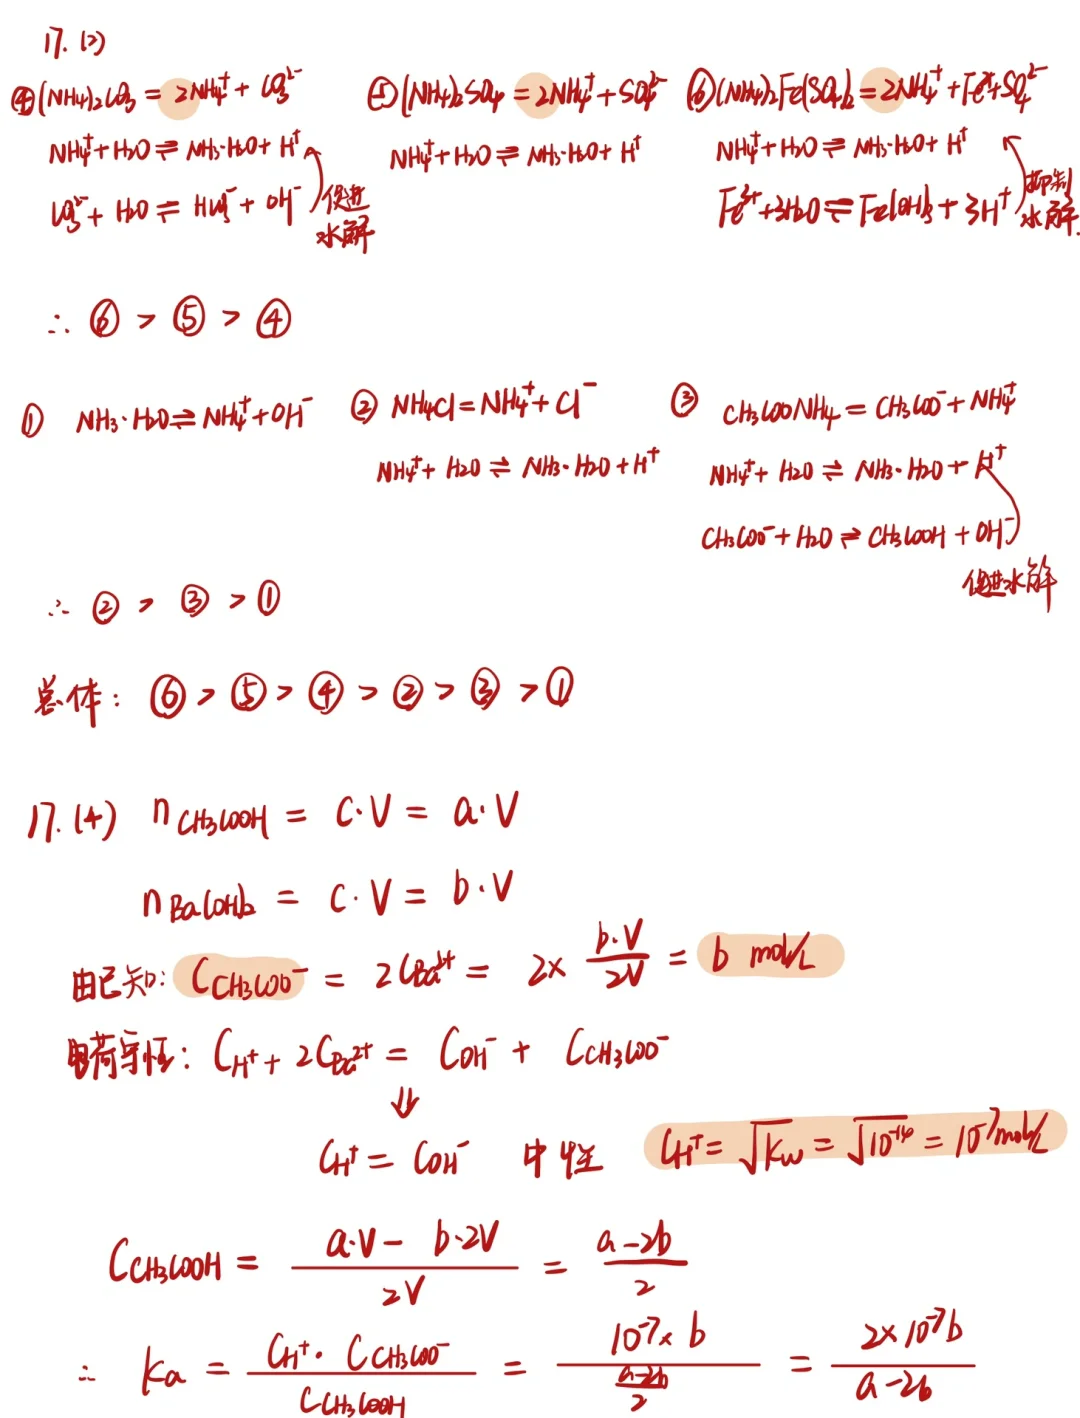 17.(2)
④(NH₄)₂CO₃ = 2NH₄⁺ + CO₃²⁻
NH₄⁺ + H₂O ⇌ NH₃·H₂O + H⁺
CO₃²⁻ + H₂O ⇌ HCO₃⁻ + OH⁻
促进
水解
⑤(NH₄)₂SO₄ = 2NH₄⁺ + SO₄²⁻
NH₄⁺ + H₂O ⇌ NH₃·H₂O + H⁺
⑥(NH₄)₂Fe(SO₄)₂ = 2NH₄⁺ + Fe²⁺ + SO₄²⁻
NH₄⁺ + H₂O ⇌ NH₃·H₂O + H⁺
Fe³⁺ + 3H₂O ⇌ Fe(OH)₃ + 3H⁺
抑制
水解.
∴ ⑥ > ⑤ > ④
① NH₃·H₂O ⇌ NH₄⁺ + OH⁻
② NH₄Cl = NH₄⁺ + Cl⁻
NH₄⁺ + H₂O ⇌ NH₃·H₂O + H⁺
③ CH₃COONH₄ = CH₃COO⁻ + NH₄⁺
NH₄⁺ + H₂O ⇌ NH₃·H₂O + H⁺
CH₃COO⁻ + H₂O ⇌ CH₃COOH + OH⁻
促进水解
∴ ② > ③ > ①
总体: ⑥ > ⑤ > ④ > ② > ③ > ①
17.(4) n CH₃COOH = C·V = a·V
n Ba(OH)₂ = C·V = b·V
由已知: C CH₃COO⁻ = 2C Ba²⁺ = 2× b·V/2V = b mol/L
电荷守恒: C H⁺ + 2C Ba²⁺ = C OH⁻ + C CH₃COO⁻
⇓
C H⁺ = C OH⁻ 中性 C H⁺ = √Kw = √10⁻¹⁴ = 10⁻⁷ mol/L
C CH₃COOH = (a·V − b·2V)/2V = (a−2b)/2
∴ Ka = C H⁺ · C CH₃COO⁻ / C CH₃COOH = 10⁻⁷ × b / ((a−2b)/2) = 2×10⁻⁷b / (a−2b)